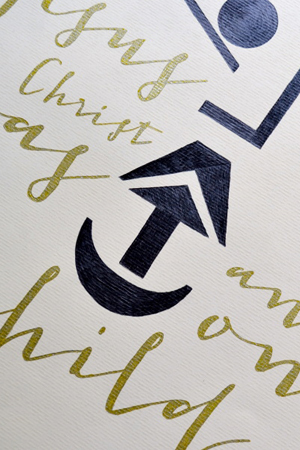 esus
Christ
as
an
on
hild